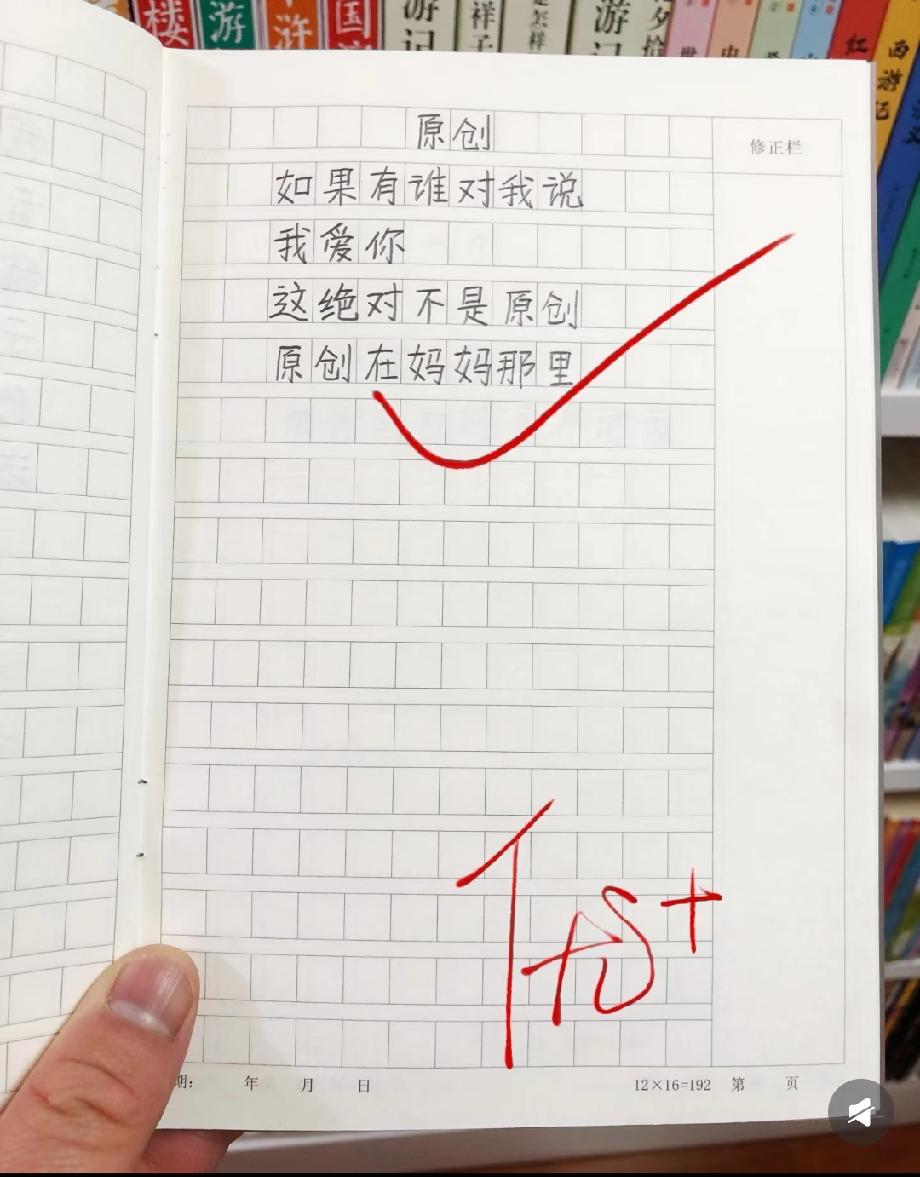 楼
游
水浒
国
游记
祥子
是怎样
游记
夕拾
红
西游记
原创
修正栏
如果有谁对我说
我爱你
这绝对不是原创
原创在妈妈那里
优+
期: 年 月 日
12×16=192 第 页